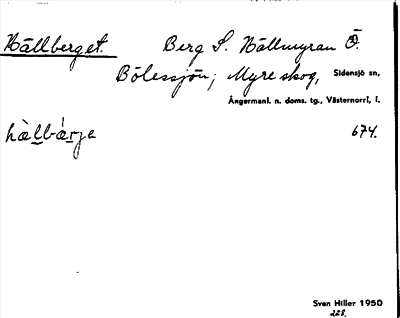 Hällberget. Berg S. Hällmyran Ö.
Bölessjön; Myre skog, Sidensjö sn,
Ångermanl. n. doms. tg., Västernorrl, l.
hällbärje 674.
Sven Hiller 1950
228.